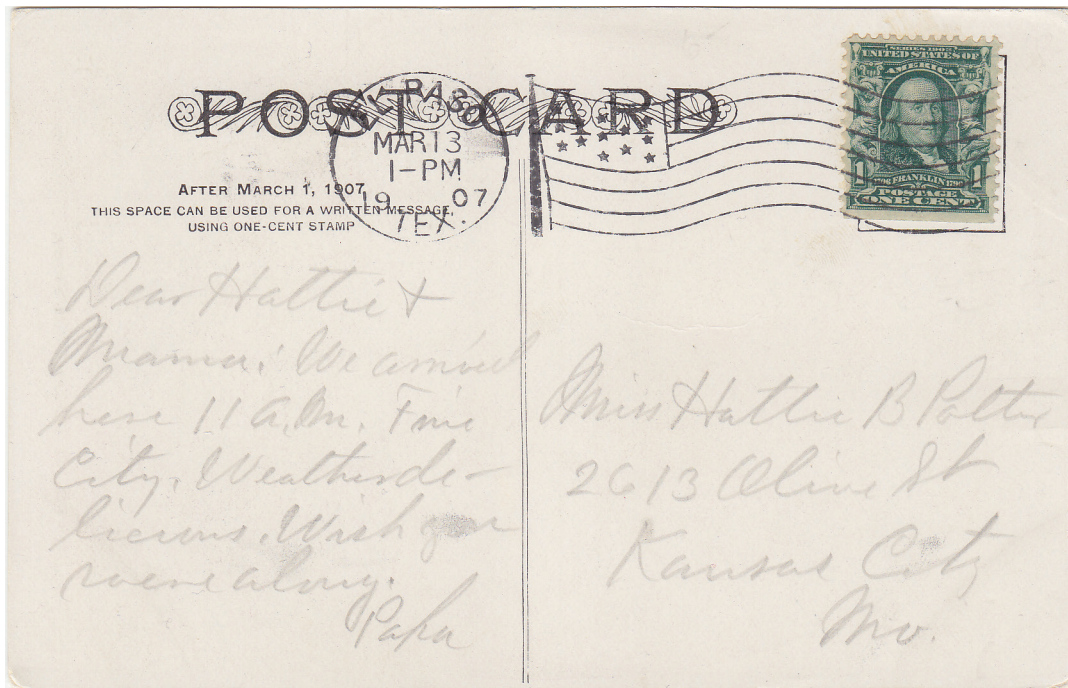 POST CARD
EL PASO
MAR 13
1-PM
19 07
TEX.
SERIES 1902
UNITED STATES OF
AMERICA
1 FRANKLIN 1
POSTAGE
ONE CENT
AFTER MARCH 1, 1907
THIS SPACE CAN BE USED FOR A WRITTEN MESSAGE,
USING ONE-CENT STAMP
Dear Hattie &
Mama: We arrived
here 11 A.M. Fine
City. Weather de-
licious. Wish you
were along.
Papa
Miss Hattie B Potter
2613 Olive St
Kansas City
Mo.